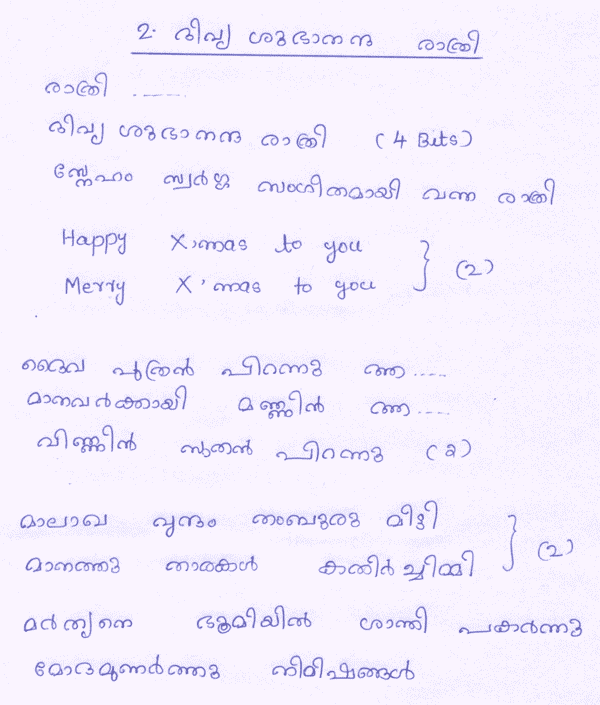 2. ദിവ്യ ശുഭാനന്ദ രാത്രി
രാത്രി .......
ദിവ്യ ശുഭാനന്ദ രാത്രി (4 Bits)
സ്നേഹം സ്വർഗ്ഗ സംഗീതമായി വന്ന രാത്രി
Happy X'mas to you
Merry X'mas to you } (2)
ദൈവ പുത്രൻ പിറന്നു ആ.....
മാനവർക്കായി മണ്ണിൻ ആ.....
വിണ്ണിൻ സുതൻ പിറന്നു (2)
മാലാഖ വൃന്ദം തംബുരു മീട്ടി
മാനത്തു താരകൾ കാതിർ ച്ചിമ്മി } (2)
മർത്യനെ ഭൂമിയിൽ ശാന്തി പകർന്നു
മോദമുണർത്തു നിമിഷങ്ങൾ